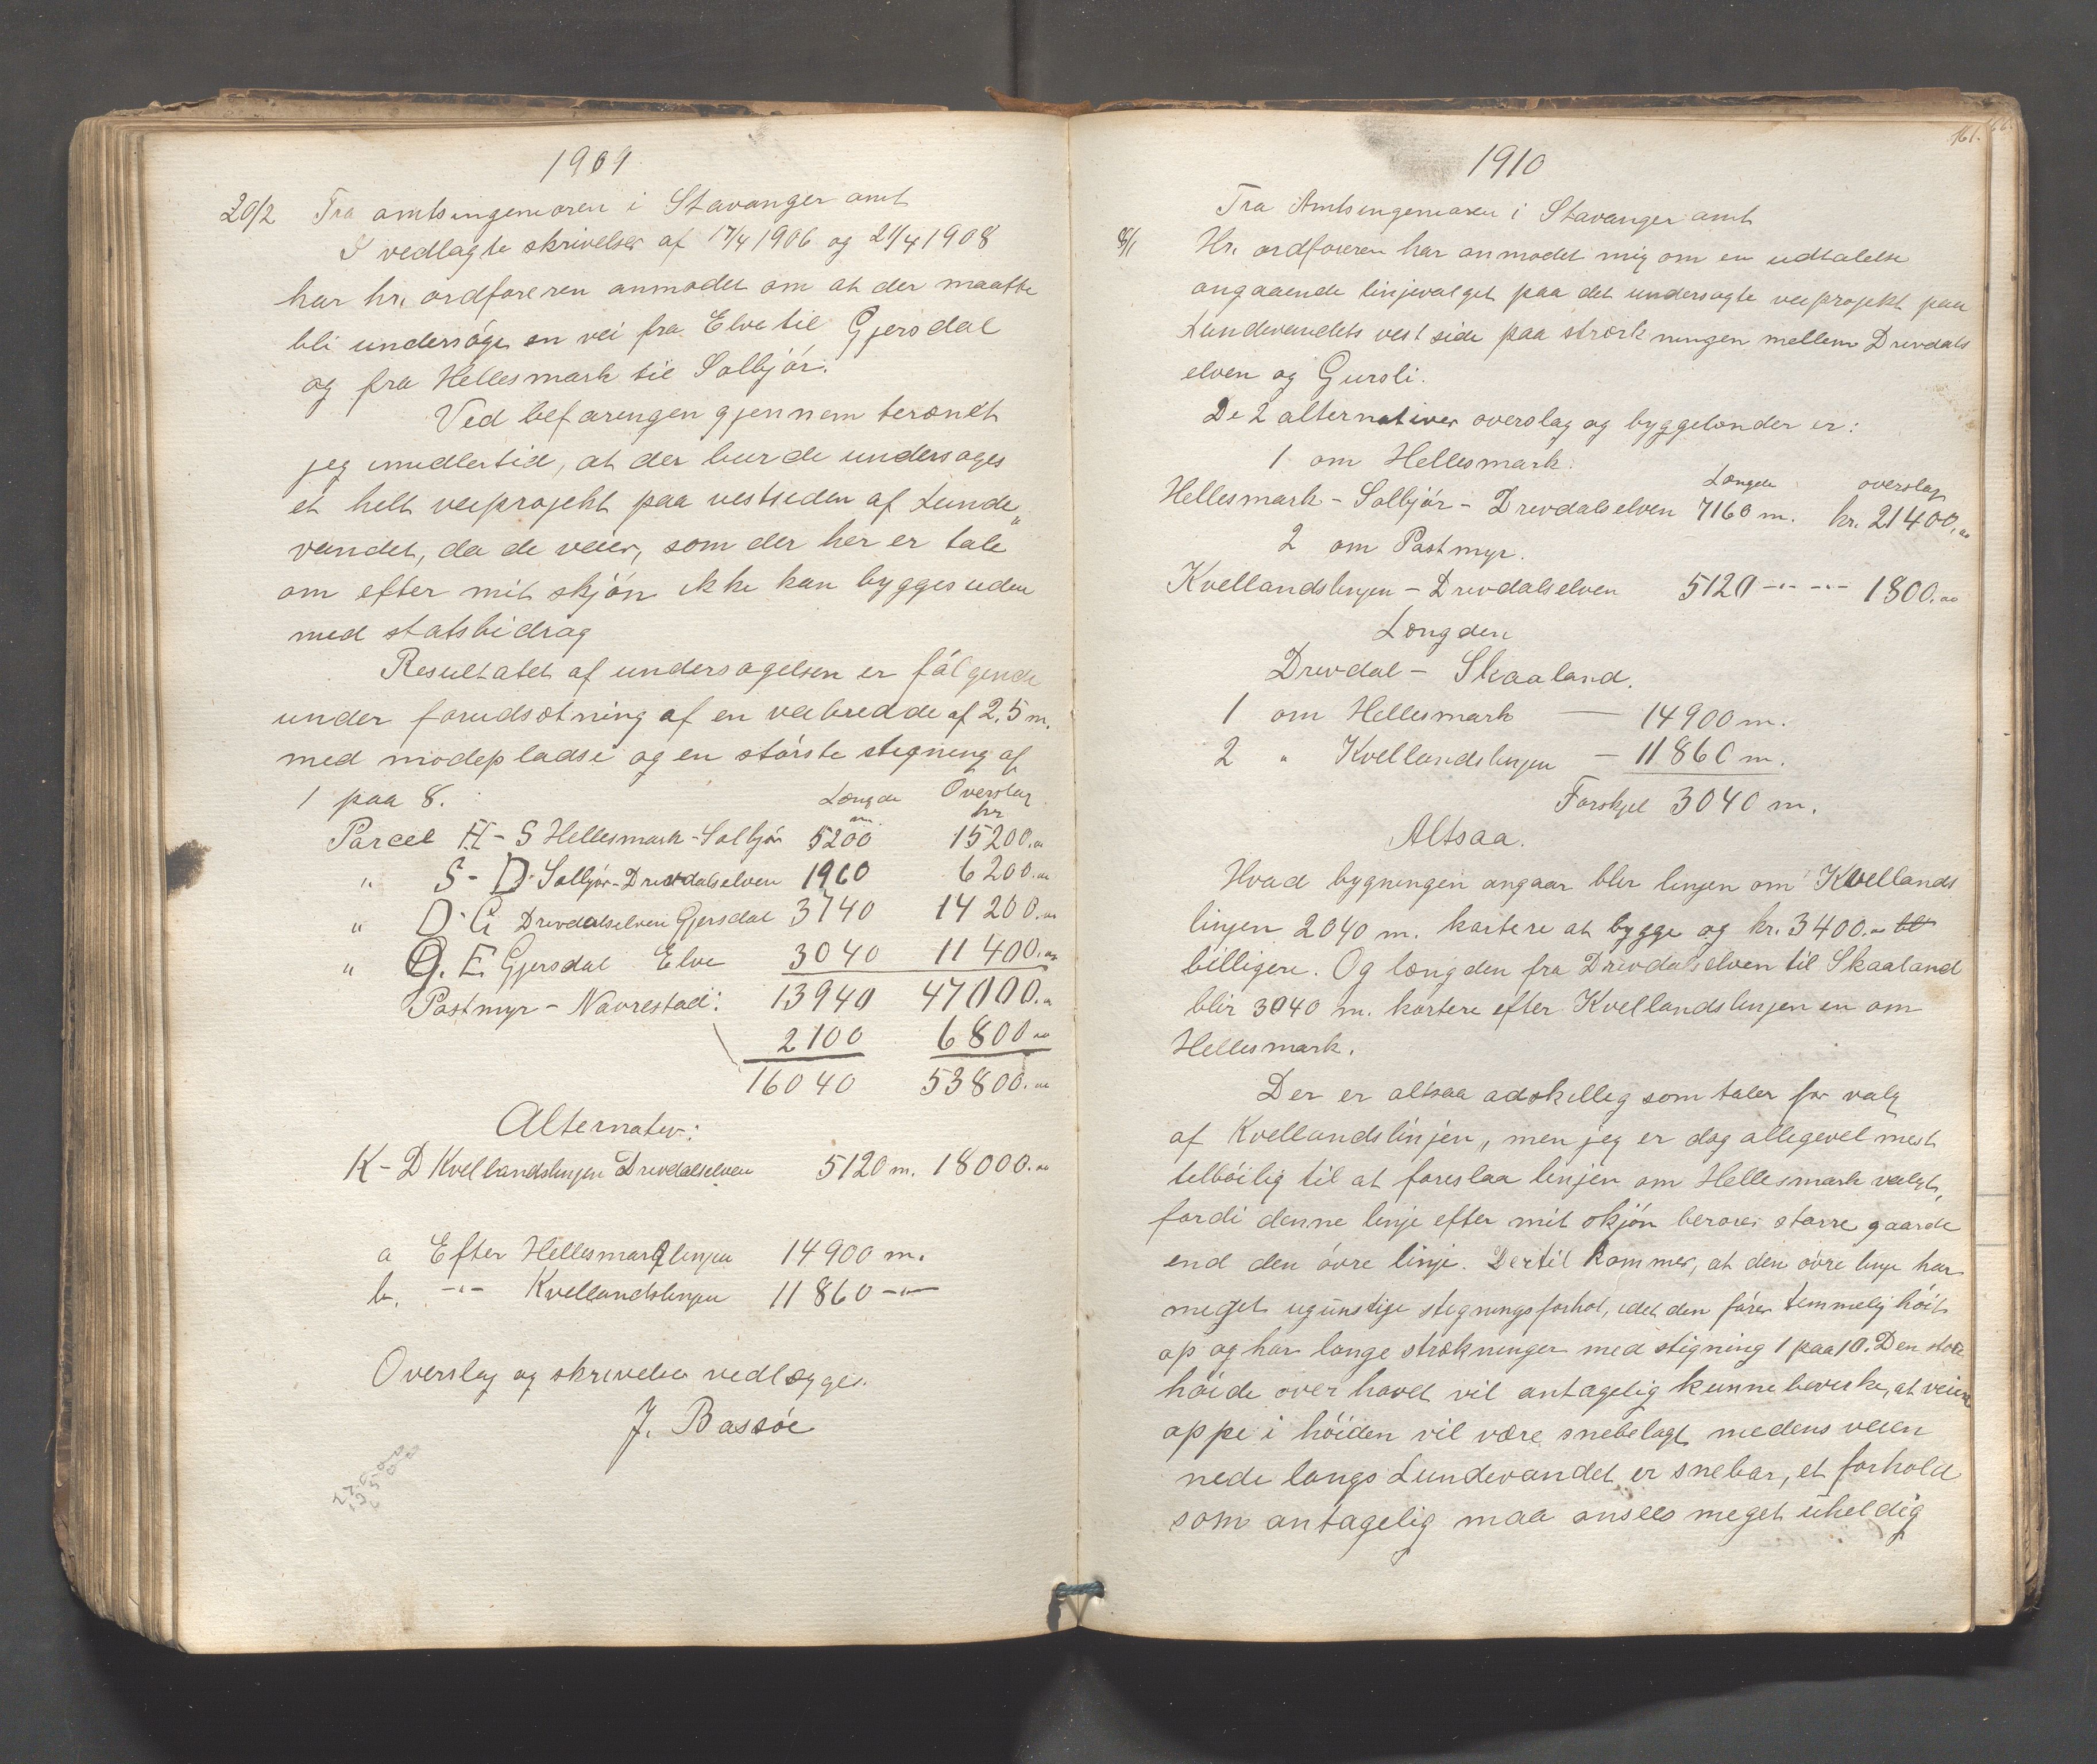 1909
20/2 Fra amtsingeniøren i Stavanger amt
I vedlagte skrivelser af 17/4 1906 og 21/4 1908
har hr. ordføreren anmodet om at der maatte
bli undersøge en vei fra Elve til Gjersdal
og fra Hellesmark til Solbjør.
Ved befaringen gjennem terændt
jeg imidlertid, at der burde undersøges
et helt veiprojekt paa vestsiden af Lunde„
vandet, da de veier, som der her er tale
om efter mit skjøn ikke kan bygges uden
med statsbidrag
Resultatet af undersøgelsen er følgende
under forudsætning af en veibredde af 2,5 m.
med mødepladse og en største stigning af
1 paa 8. Længde Overslag
m. kr
Parcel H - S Hellesmark-Solbjør 5200 15200.00
" S - D Solbjør-Drivdalselven 1960 6200.00
" D - G Drivdalselven Gjersdal 3740 14200.00
" G. E. Gjersdal Elve 3040 11400.00
Postmyr - Navrestad: 13940 47000.00
2100 6800.00
16040 53800.00
Alternativ:
K - D Kvellandslinjen Drivdalselven 5120 m. 18000.00
a Efter Hellesmarklinjen 14900 m.
b. -"- Kvellandslinjen 11860 -"-
Overslag og skrivelser vedlægges.
J. Bassøe
161.
1910
Fra Amtsingeniøren i Stavanger amt
8/1 Hr. ordføreren har anmodet mig om en udtalelse
angaaende linjevalget paa det undersøgte veiprojekt paa
Lundevandets vest side paa strækningen mellem Drivdals
elven og Gursli.
De 2 alternativer overslag og byggelænder er:
1 om Hellesmark. Længde overslag
Hellesmark - Solbjør - Drivdalselven 7160 m. kr. 21400,00
2 om Postmyr.
Kvellandslinjen - Drivdalselven 5120 -"- -"- 1800.00
Længden
Drivdal - Skaaland.
1 om Hellesmark — 14900 m.
2 " Kvellandslinjen — 11860 m.
Forskjel 3040 m.
Altsaa.
Hvad bygningen angaar blir linjen om Kvellands
linjen 2040 m. kortere at bygge og kr. 3400.00
billigere. Og længden fra Drivdalselven til Skaaland
blir 3040 m. kortere efter Kvellandslinjen en om
Hellesmark.
Der er altsaa adskillig som taler for valg
af Kvellandslinjen, men jeg er dog allegevel mest
tilbøilig til at foreslaa linjen om Hellesmark valgt,
fordi denne linje efter mit skjøn berører større gaarde
end den øvre linje. Dertil kommer, at den øvre linje har
meget ugunstige stigningsforhol, idet den fører temmelig høit
op og har lange strækninger med stigning 1 paa 10. Den store
høide over havet vil antagelig kunne bevirke, at veien
oppe i høiden vil være snebelagt medens veien
nede langs Lundevandet er snebar, et forhold
som antagelig maa ansees meget uheldig